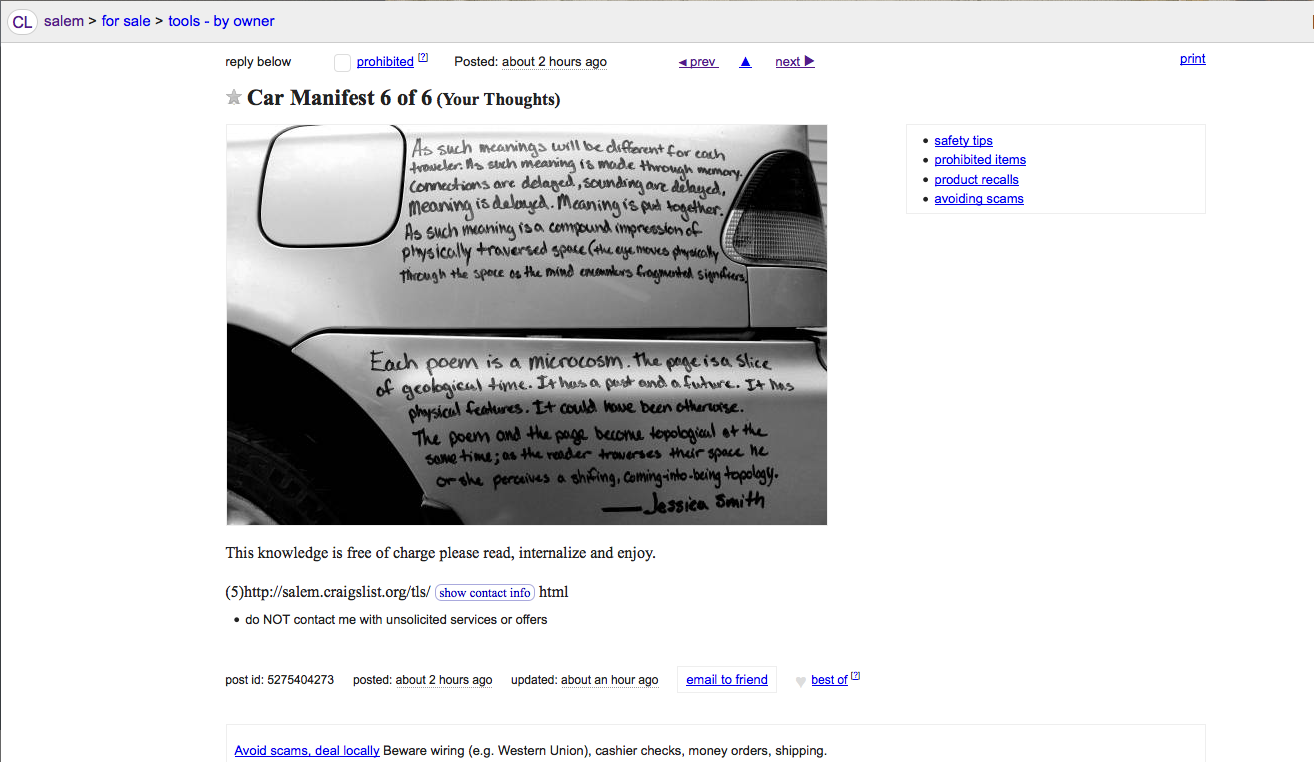 CL salem > for sale > tools - by owner
reply below prohibited [?] Posted: about 2 hours ago ◀ prev ▲ next ▶ print
★ Car Manifest 6 of 6 (Your Thoughts)
As such meanings will be different for each
traveler. As such meaning is made through memory.
Connections are delayed, sounding are delayed,
Meaning is delayed. Meaning is put together.
As such meaning is a compound impression of
physically traversed space (the eye moves physically
through the space as the mind encounters fragmented signifiers.
Each poem is a microcosm. The page is a slice
of geological time. It has a past and a future. It has
physical features. It could have been otherwise.
The poem and the page become topological at the
same time; as the reader traverses their space he
or she perceives a shifing, coming-into-being topology.
—Jessica Smith
• safety tips
• prohibited items
• product recalls
• avoiding scams
This knowledge is free of charge please read, internalize and enjoy.
(5)http://salem.craigslist.org/tls/ show contact info html
• do NOT contact me with unsolicited services or offers
post id: 5275404273 posted: about 2 hours ago updated: about an hour ago email to friend ♥ best of [?]
Avoid scams, deal locally Beware wiring (e.g. Western Union), cashier checks, money orders, shipping.